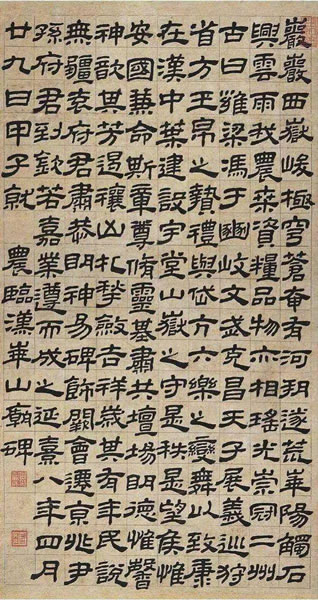 巖巖西嶽峻極穹蒼奄有河朔遂荒華陽觸石
興雲雨我農桒資糧品物亦相瑤光崇冠二州
古曰雍梁馮于豳岐文武克昌天子展義巡狩
省方王帛之贄禮與岱亢六樂之變舞以致康
在漢中葉建設宇堂山嶽之守是秩是望侯惟
安國兼命斯章尊脩靈基肅共壇場明德惟馨
神歆其芳遏禳凶札揫斂吉祥歲其有年民說
無疆袁府君肅恭明神易碑飾闕會遷京兆尹
孫府君到欽若嘉業遵而成之延熹八年四月
廿九日甲子就 農臨漢華山廟碑